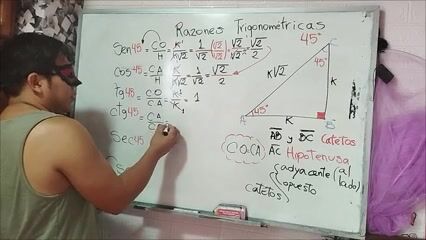 Razones Trigonométricas
Sen45 = CO/H = K/K√2 = 1/√2 (√2/√2) = √2/√2² = √2/2
Cos45 = CA/H = K/K√2 = 1/√2 = √2/2
tg45 = CO/CA = K/K = 1
ctg45 = CA/
Sec45
45°
45°
K√2
K
A 45°
K
B
AB y BC Catetos
COCA
AC Hipotenusa
catetos { adyacente (al lado)
opuesto